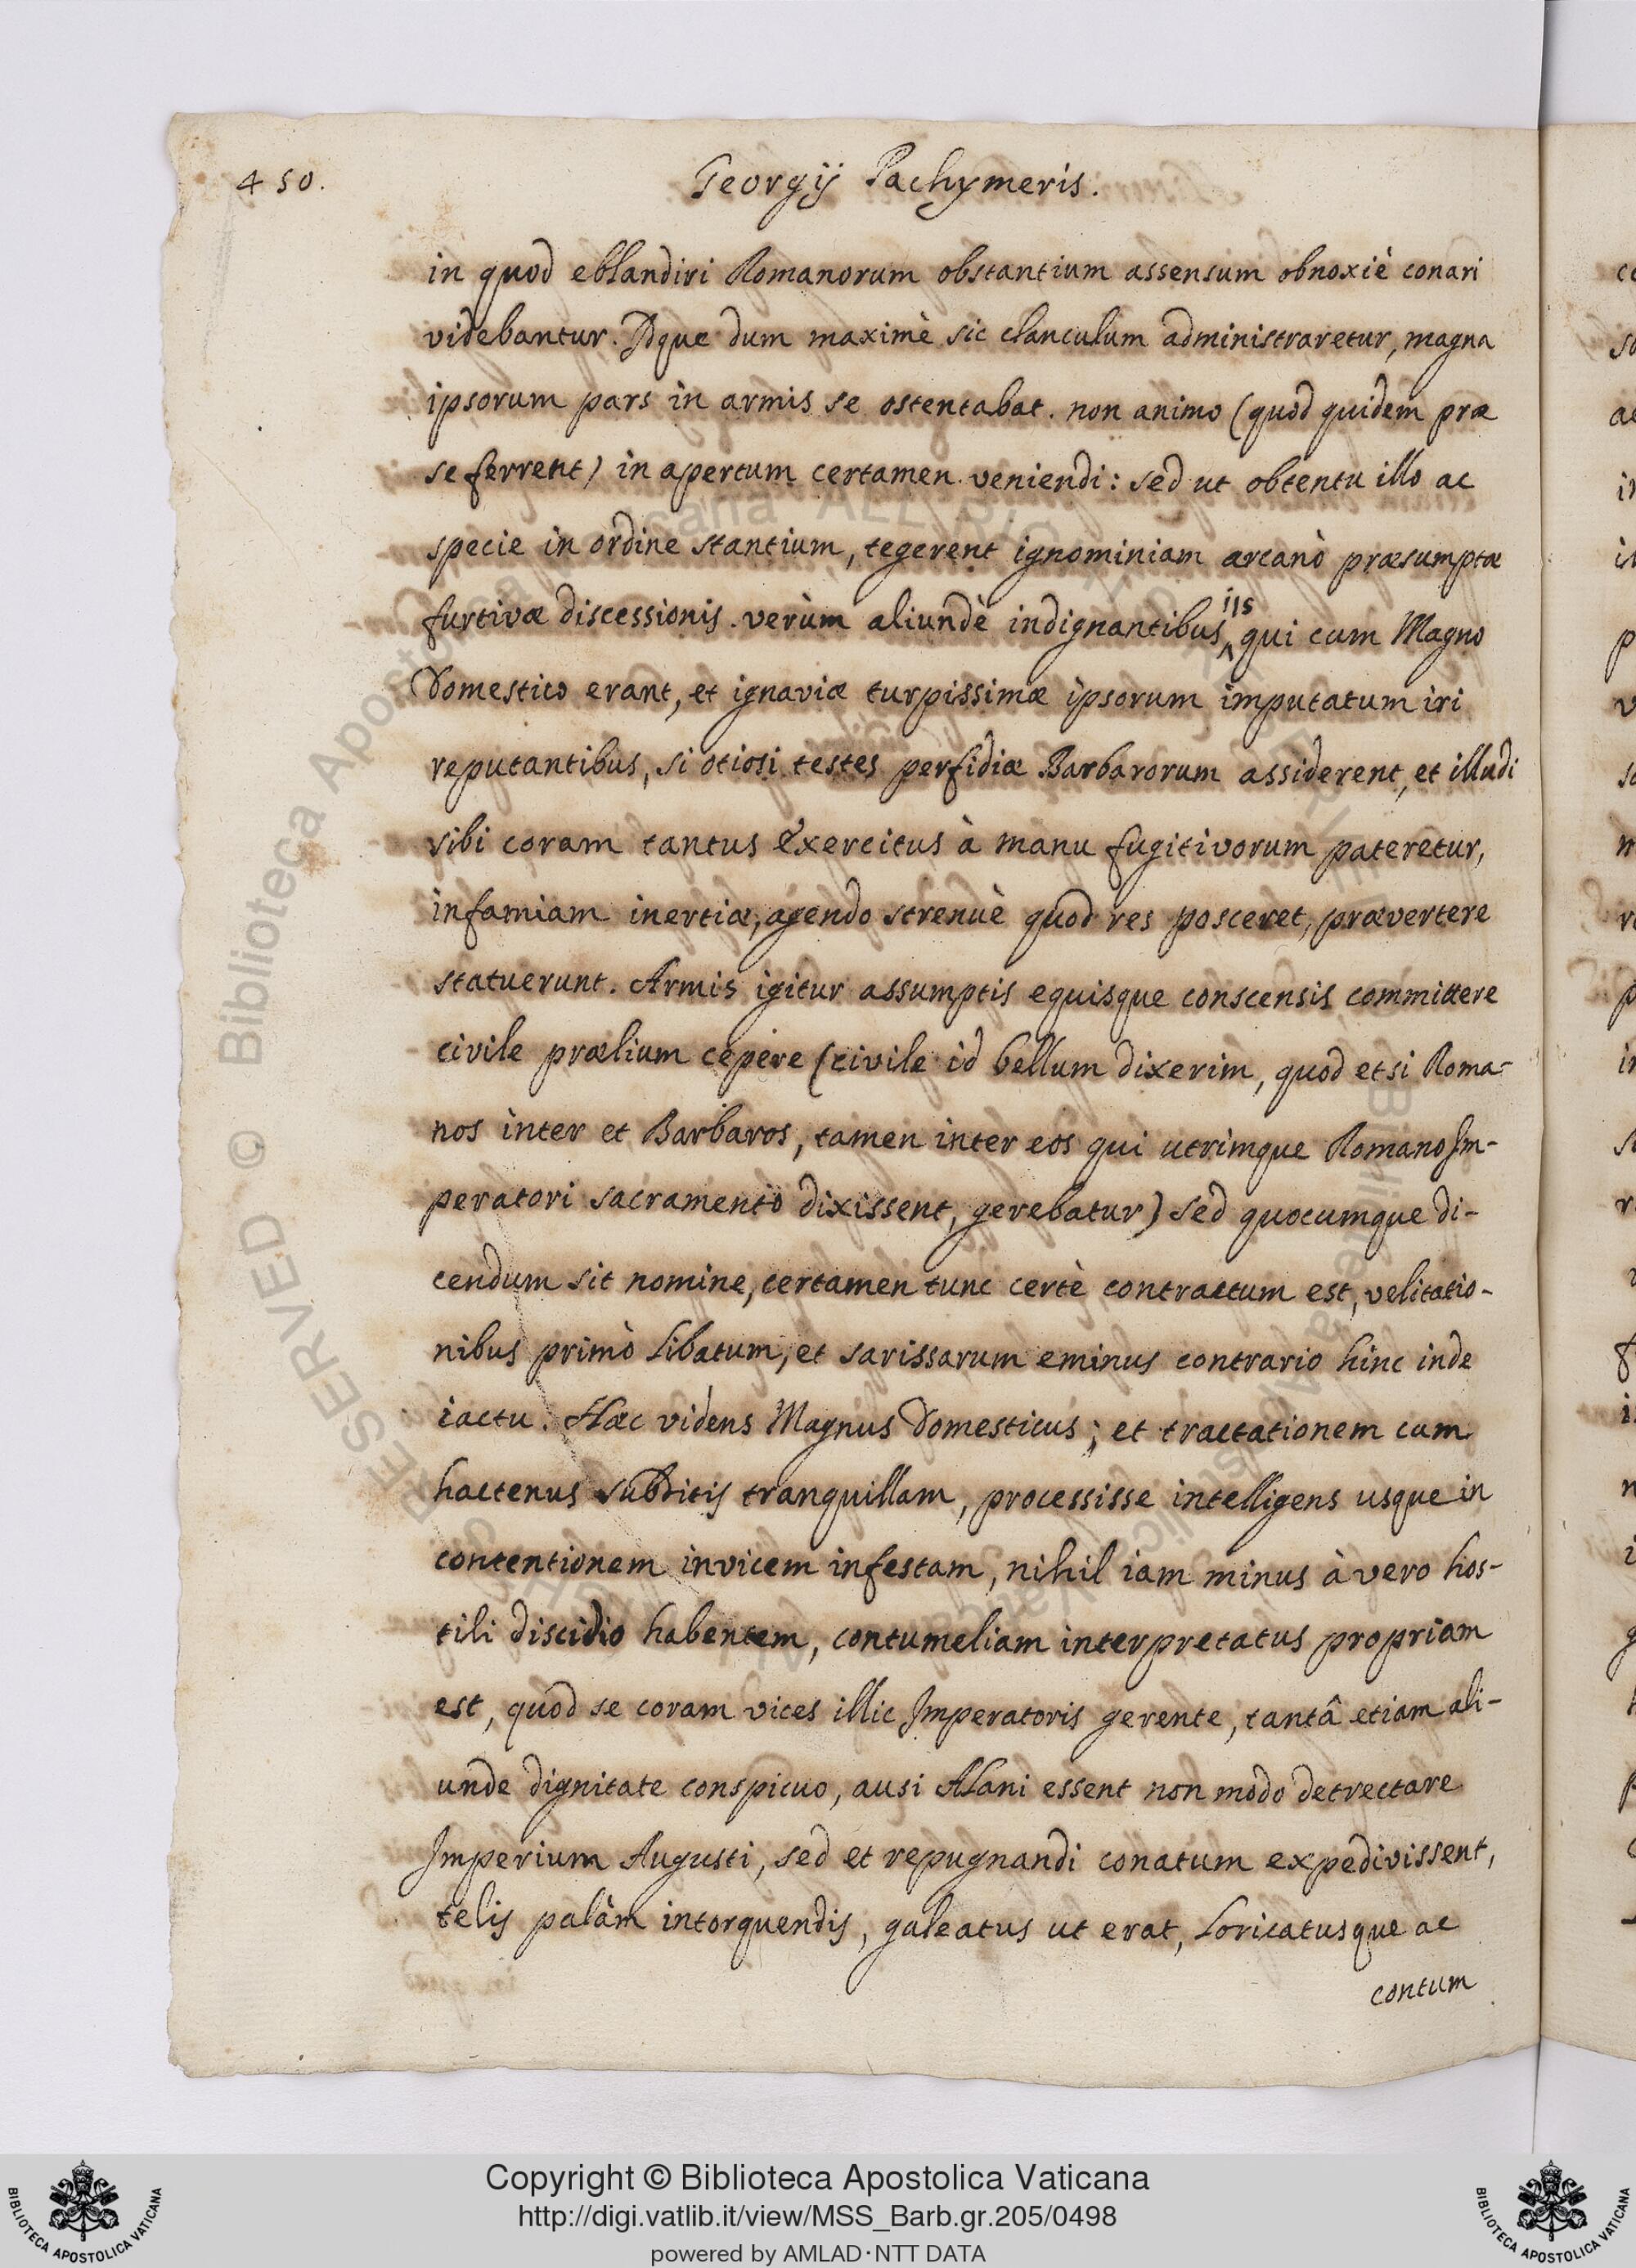 450.
Georgij Pachymeris.
in quod eblandiri Romanorum obstantium assensum obnoxiè conari
videbantur. Idque dum maximè sic clanculum administraretur, magna
ipsorum pars in armis se ostentabat. non animo (quod quidem præ
se ferrent) in apertum certamen veniendi: sed ut obtentu illo ac
specie in ordine stantium, tegerent ignominiam arcanò præsumptæ
furtivæ discessionis. verùm aliundè indignantibus iis qui cum Magno
Domestico erant, et ignaviæ turpissimæ ipsorum imputatum iri
reputantibus, si otiosi testes perfidiæ Barbarorum assiderent, et illudi
sibi coram tantus exercitus à manu fugitivorum pateretur,
infamiam inertiæ, agendo strenuè quod res posceret, prævertere
statuerunt. Armis igitur assumptis equisque conscensis committere
civile prælium cepére (civile id bellum dixerim, quod etsi Roma-
nos inter et Barbaros, tamen inter eos qui utrimque Romano Im-
peratori sacramento dixissent, gerebatur) sed quocumque di-
cendum sit nomine, certamen tunc certè contractum est, velitatio-
nibus primò libatum, et sarissarum eminus contrario hinc inde
iactu. Hæc videns Magnus Domesticus; et tractationem cum
hactenus subditis tranquillam, processisse intelligens usque in
contentionem invicem infestam, nihil iam minus à vero hos-
tili discidio habentem, contumeliam interpretatus propriam
est, quod se coram vices illic Imperatoris gerente, tantâ etiam ali-
unde dignitate conspicuo, ausi Alani essent non modo detrectare
Imperium Augusti, sed et repugnandi conatum expedivissent,
telis palàm intorquendis, galeatus ut erat, loricatusque ac
contum
Copyright © Biblioteca Apostolica Vaticana
http://digi.vatlib.it/view/MSS_Barb.gr.205/0498
powered by AMLAD·NTT DATA
BIBLIOTECA APOSTOLICA VATICANA
BIBLIOTECA APOSTOLICA VATICANA